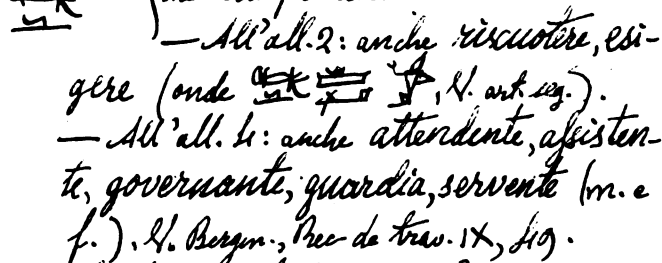 — All'all. 2: anche riscuotere, esi-
gere (onde , V. art. seg.).
— All'all. 4: anche attendente, assisten-
te, governante, guardia, servente (m. e
f.). V. Bergm., Rec de trav. IX,